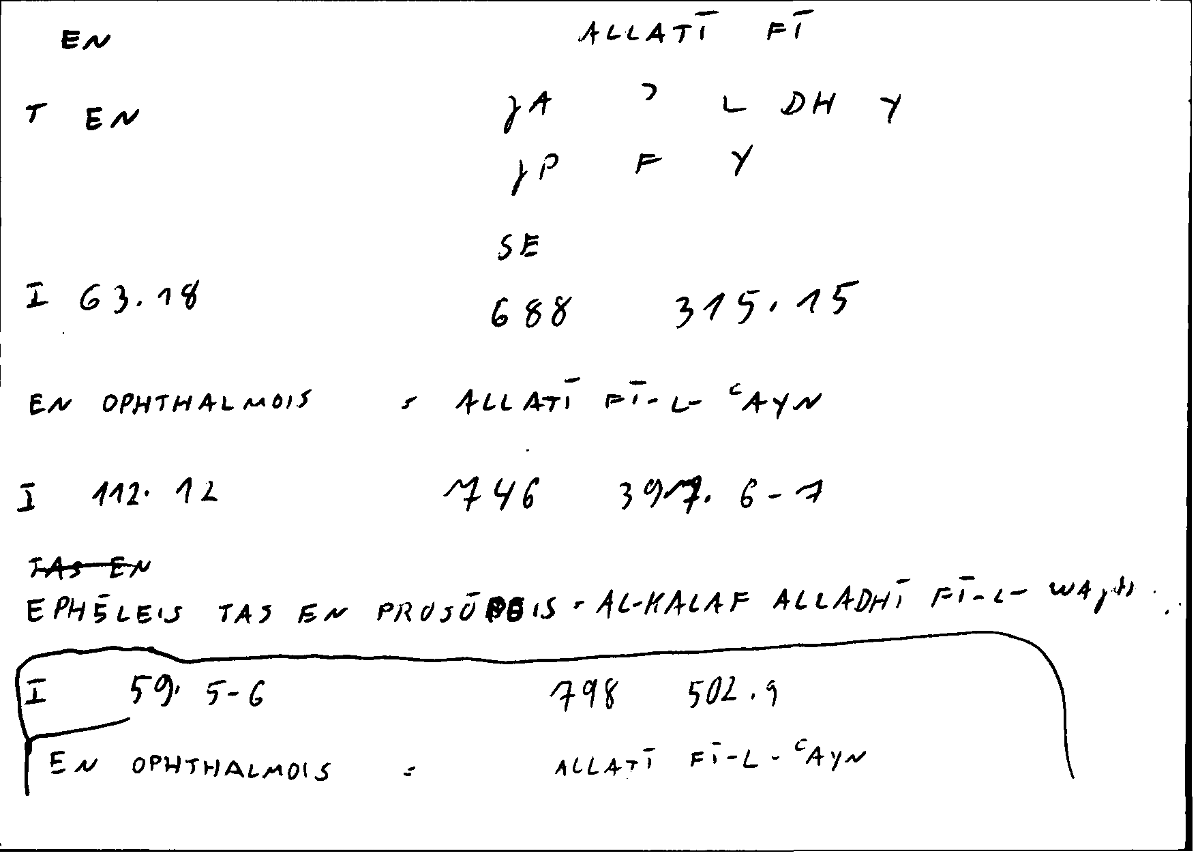 EN ALLATĪ FĪ
T EN ɣA ʾ L DH Y
ɣP F Y
SE
I 63.18 688 315.15
EN OPHTHALMOIS = ALLATĪ FĪ-L-ʿAYN
I 112.12 746 397.6-7
TAS EN
EPHĒLEIS TAS EN PROSŌPOIS = AL-KALAF ALLADHĪ FĪ-L-WAJHI
I 59.5-6 798 502.9
EN OPHTHALMOIS = ALLATĪ FĪ-L-ʿAYN